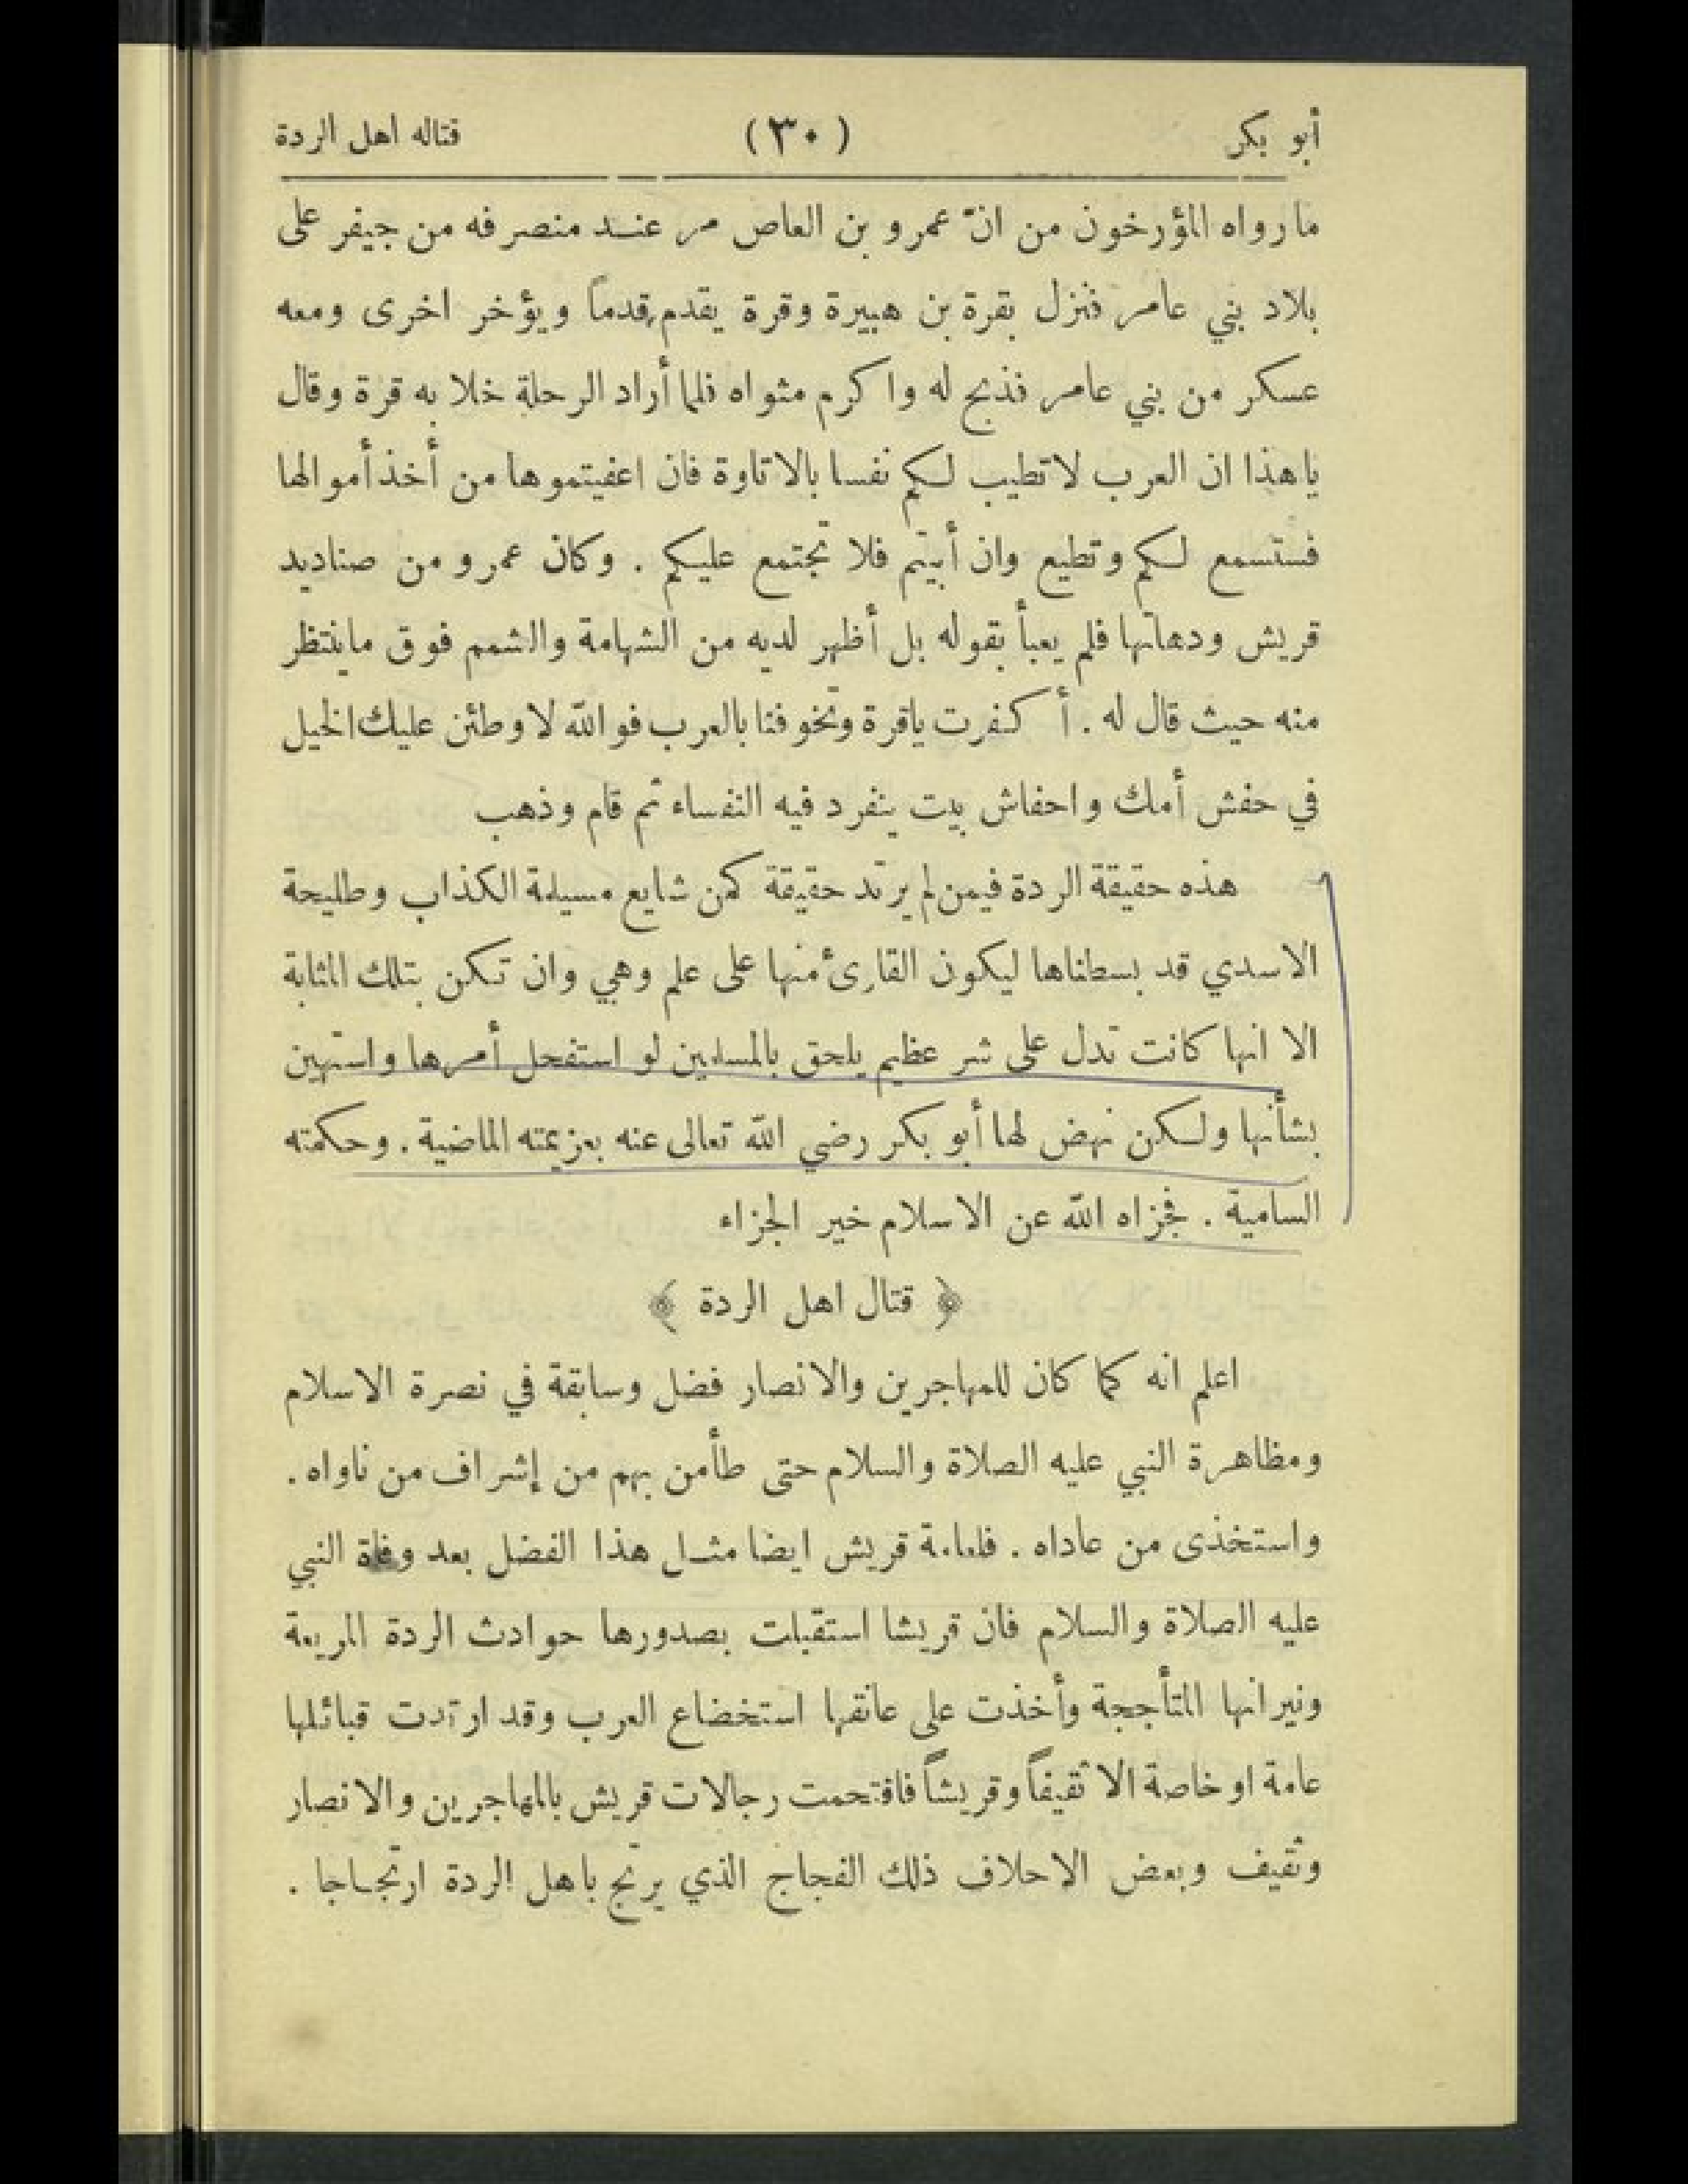 أبو بكر (٣٠) قتاله اهل الردة
ما رواه المؤرخون من انّ عمرو بن العاص مر عنـد منصرفه من جيفر على
بلاد بني عامر فنزل بقرة بن هبيرة وقرة يقدم قدماً ويؤخر اخرى ومعه
عسكر من بني عامر فذبح له واكرم مثواه فلما أراد الرحلة خلا به قرة وقال
ياهذا ان العرب لا تطيب لـكم نفسا بالاتاوة فان اعفيتموها من أخذ أموالها
فستسمع لـكم وتطيع وان أبيتم فلا تجتمع عليكم . وكان عمرو من صناديد
قريش ودهاتها فلم يعبأ بقوله بل أظهر لديه من الشهامة والشمم فوق ماينتظر
منه حيث قال له . أكفرت ياقرة وتخوفنا بالعرب فوالله لاوطئن عليك الخيل
في حفش أمك واحفاش بيت ينفرد فيه النفساء ثم قام وذهب
هذه حقيقة الردة فيمن لم يرتد حقيقة كمن شايع مسيلمة الكذاب وطليحة
الاسدي قد بسطناها ليكون القارئ منها على علم وهي وان تـكن بتلك المثابة
الا انها كانت تدل على شر عظيم يلحق بالمسلمين لو استفحل أمرها واستهين
بشأنها ولـكن نهض لها أبو بكر رضي الله تعالى عنه بعزيمته الماضية . وحكمته
السامية . فجزاه الله عن الاسلام خير الجزاء
﴿ قتال اهل الردة ﴾
اعلم انه كما كان للمهاجرين والانصار فضل وسابقة في نصرة الاسلام
ومظاهرة النبي عليه الصلاة والسلام حتى طأمن بهم من إشراف من ناواه .
واستخذى من عاداه . فلعامة قريش ايضا مثـل هذا الفضل بعد وفاة النبي
عليه الصلاة والسلام فان قريشا استقبلت بصدورها حوادث الردة المريعة
ونيرانها المتأججة وأخذت على عاتقها استخضاع العرب وقد ارتدت قبائلها
عامة او خاصة الا ثقيفاً وقريشاً فاقتحمت رجالات قريش بالمهاجرين والانصار
وثقيف وبعض الاحلاف ذلك الفجاج الذي يرتج باهل الردة ارتجـاجا .